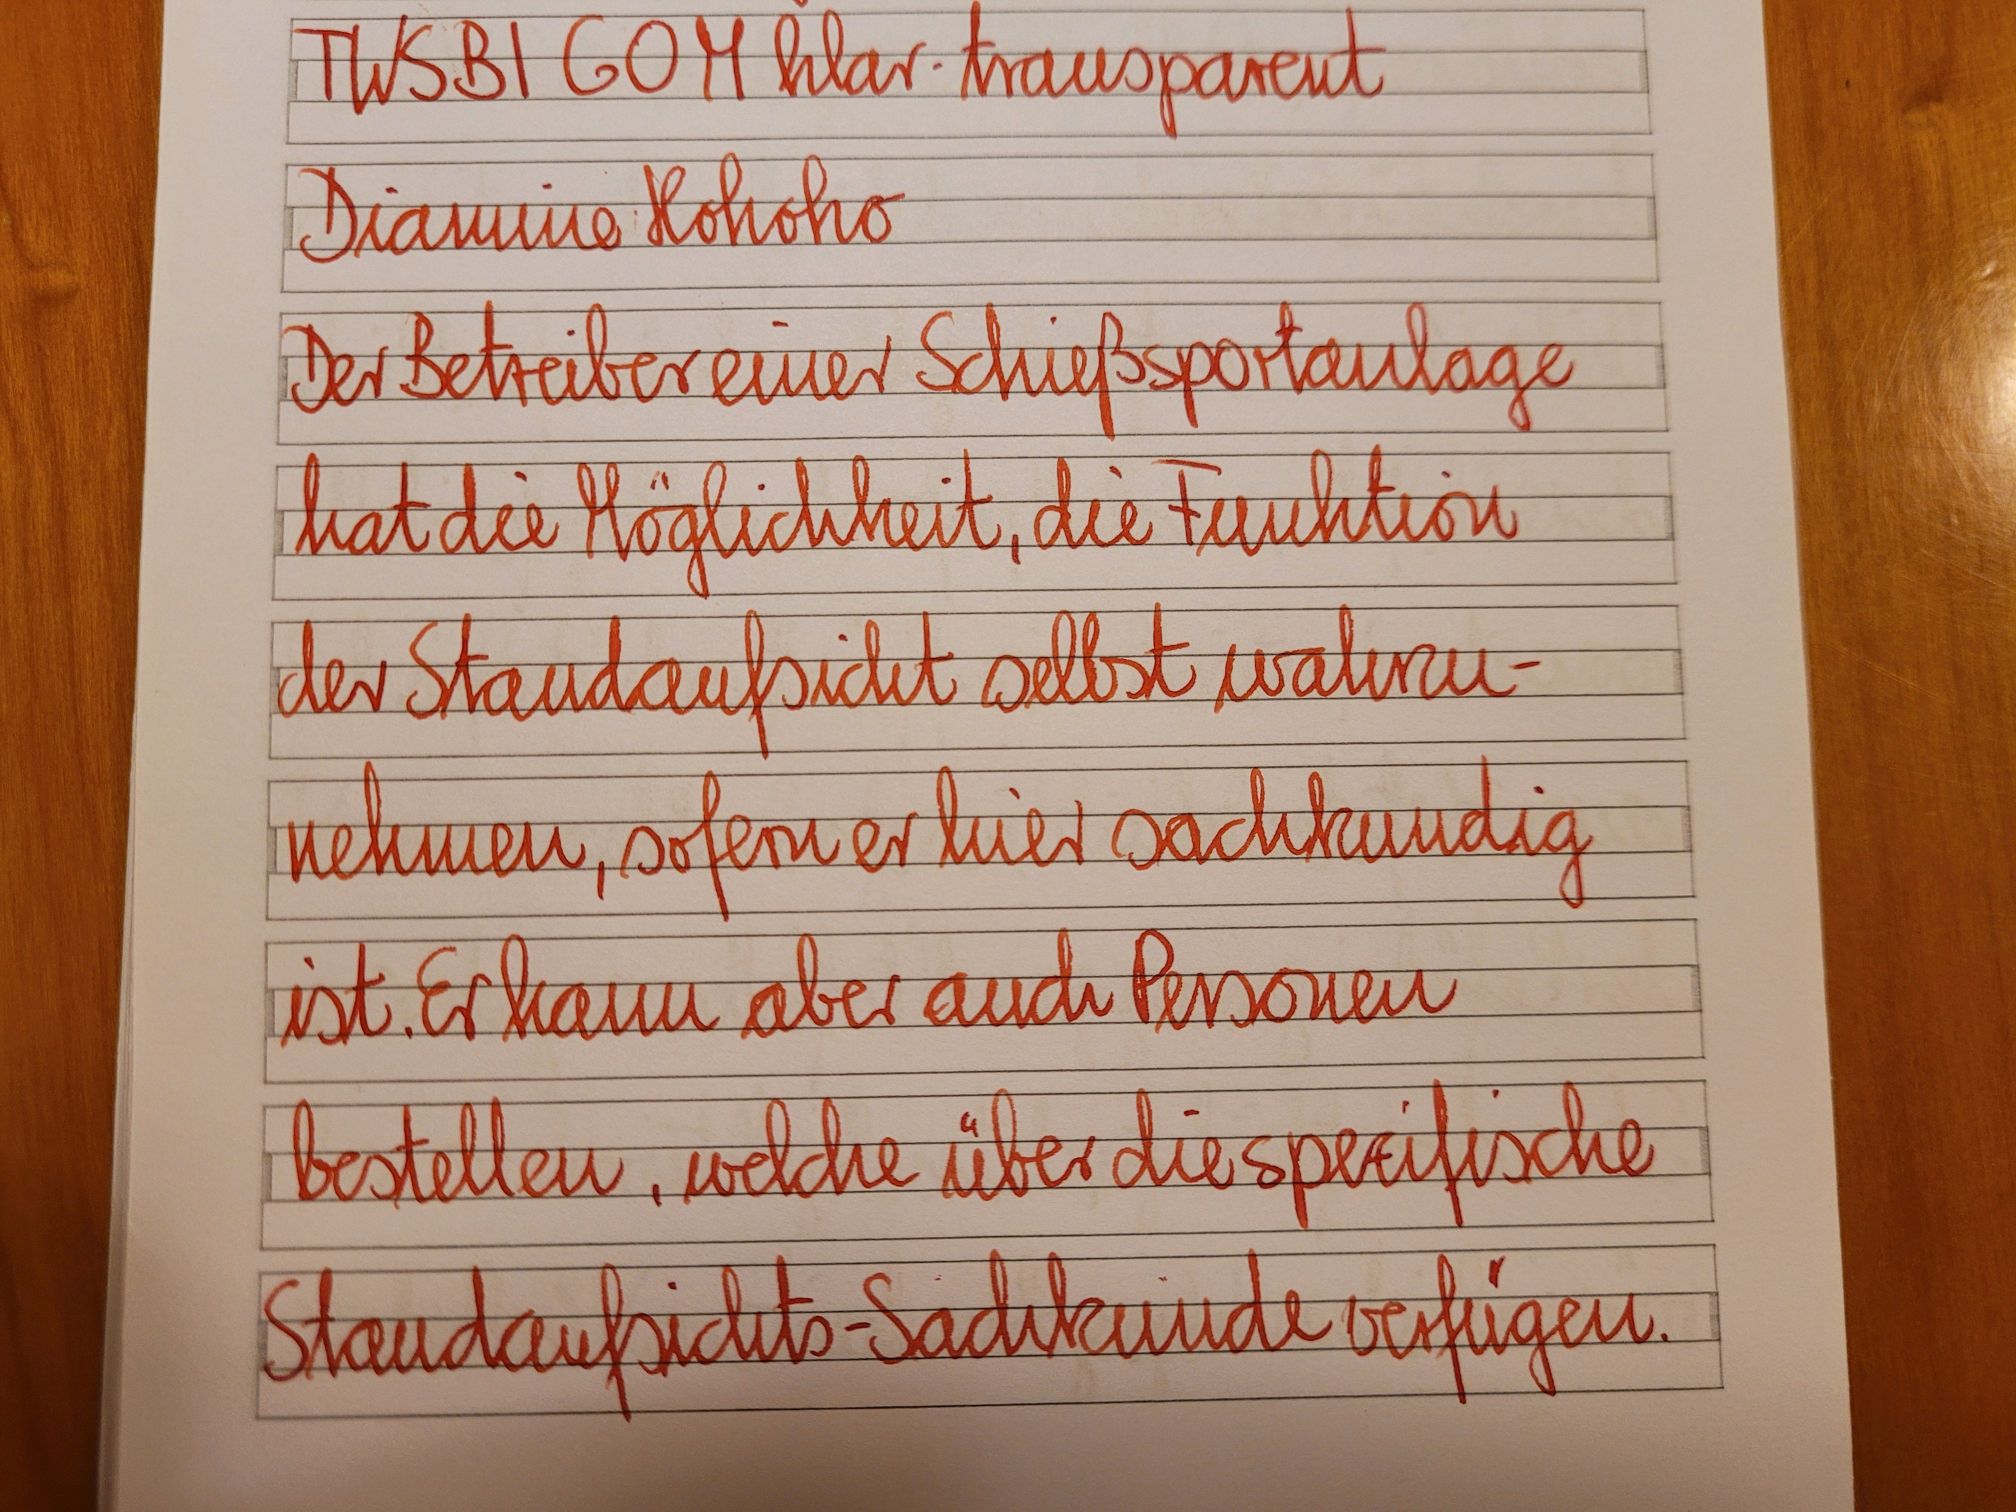 TWSBI GO M klar-transparent
Diamine Hohoho
Der Betreiber einer Schießsportanlage
hat die Möglichkeit, die Funktion
der Standaufsicht selbst wahrzu-
nehmen, sofern er hier sachkundig
ist. Er kann aber auch Personen
bestellen, welche über die spezifische
Standaufsichts-Sachkunde verfügen.